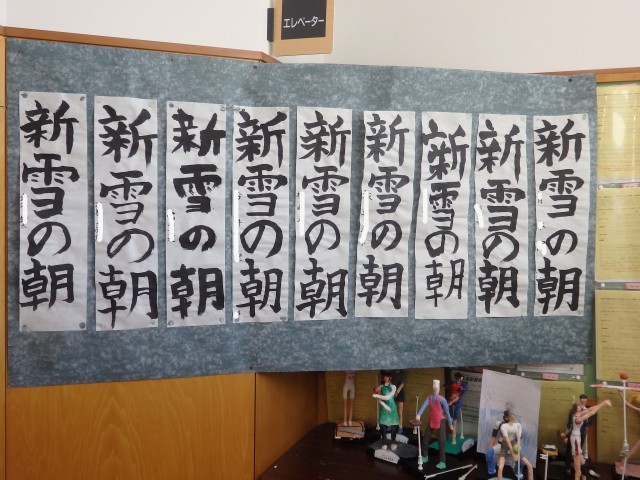 エレベーター
新雪の朝
新雪の朝
新雪の朝
新雪の朝
新雪の朝
新雪の朝
新雪の朝
新雪の朝
新雪の朝